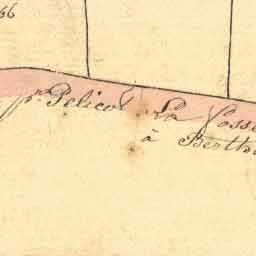 66
pr. Pelicot La Fosse
à Berth